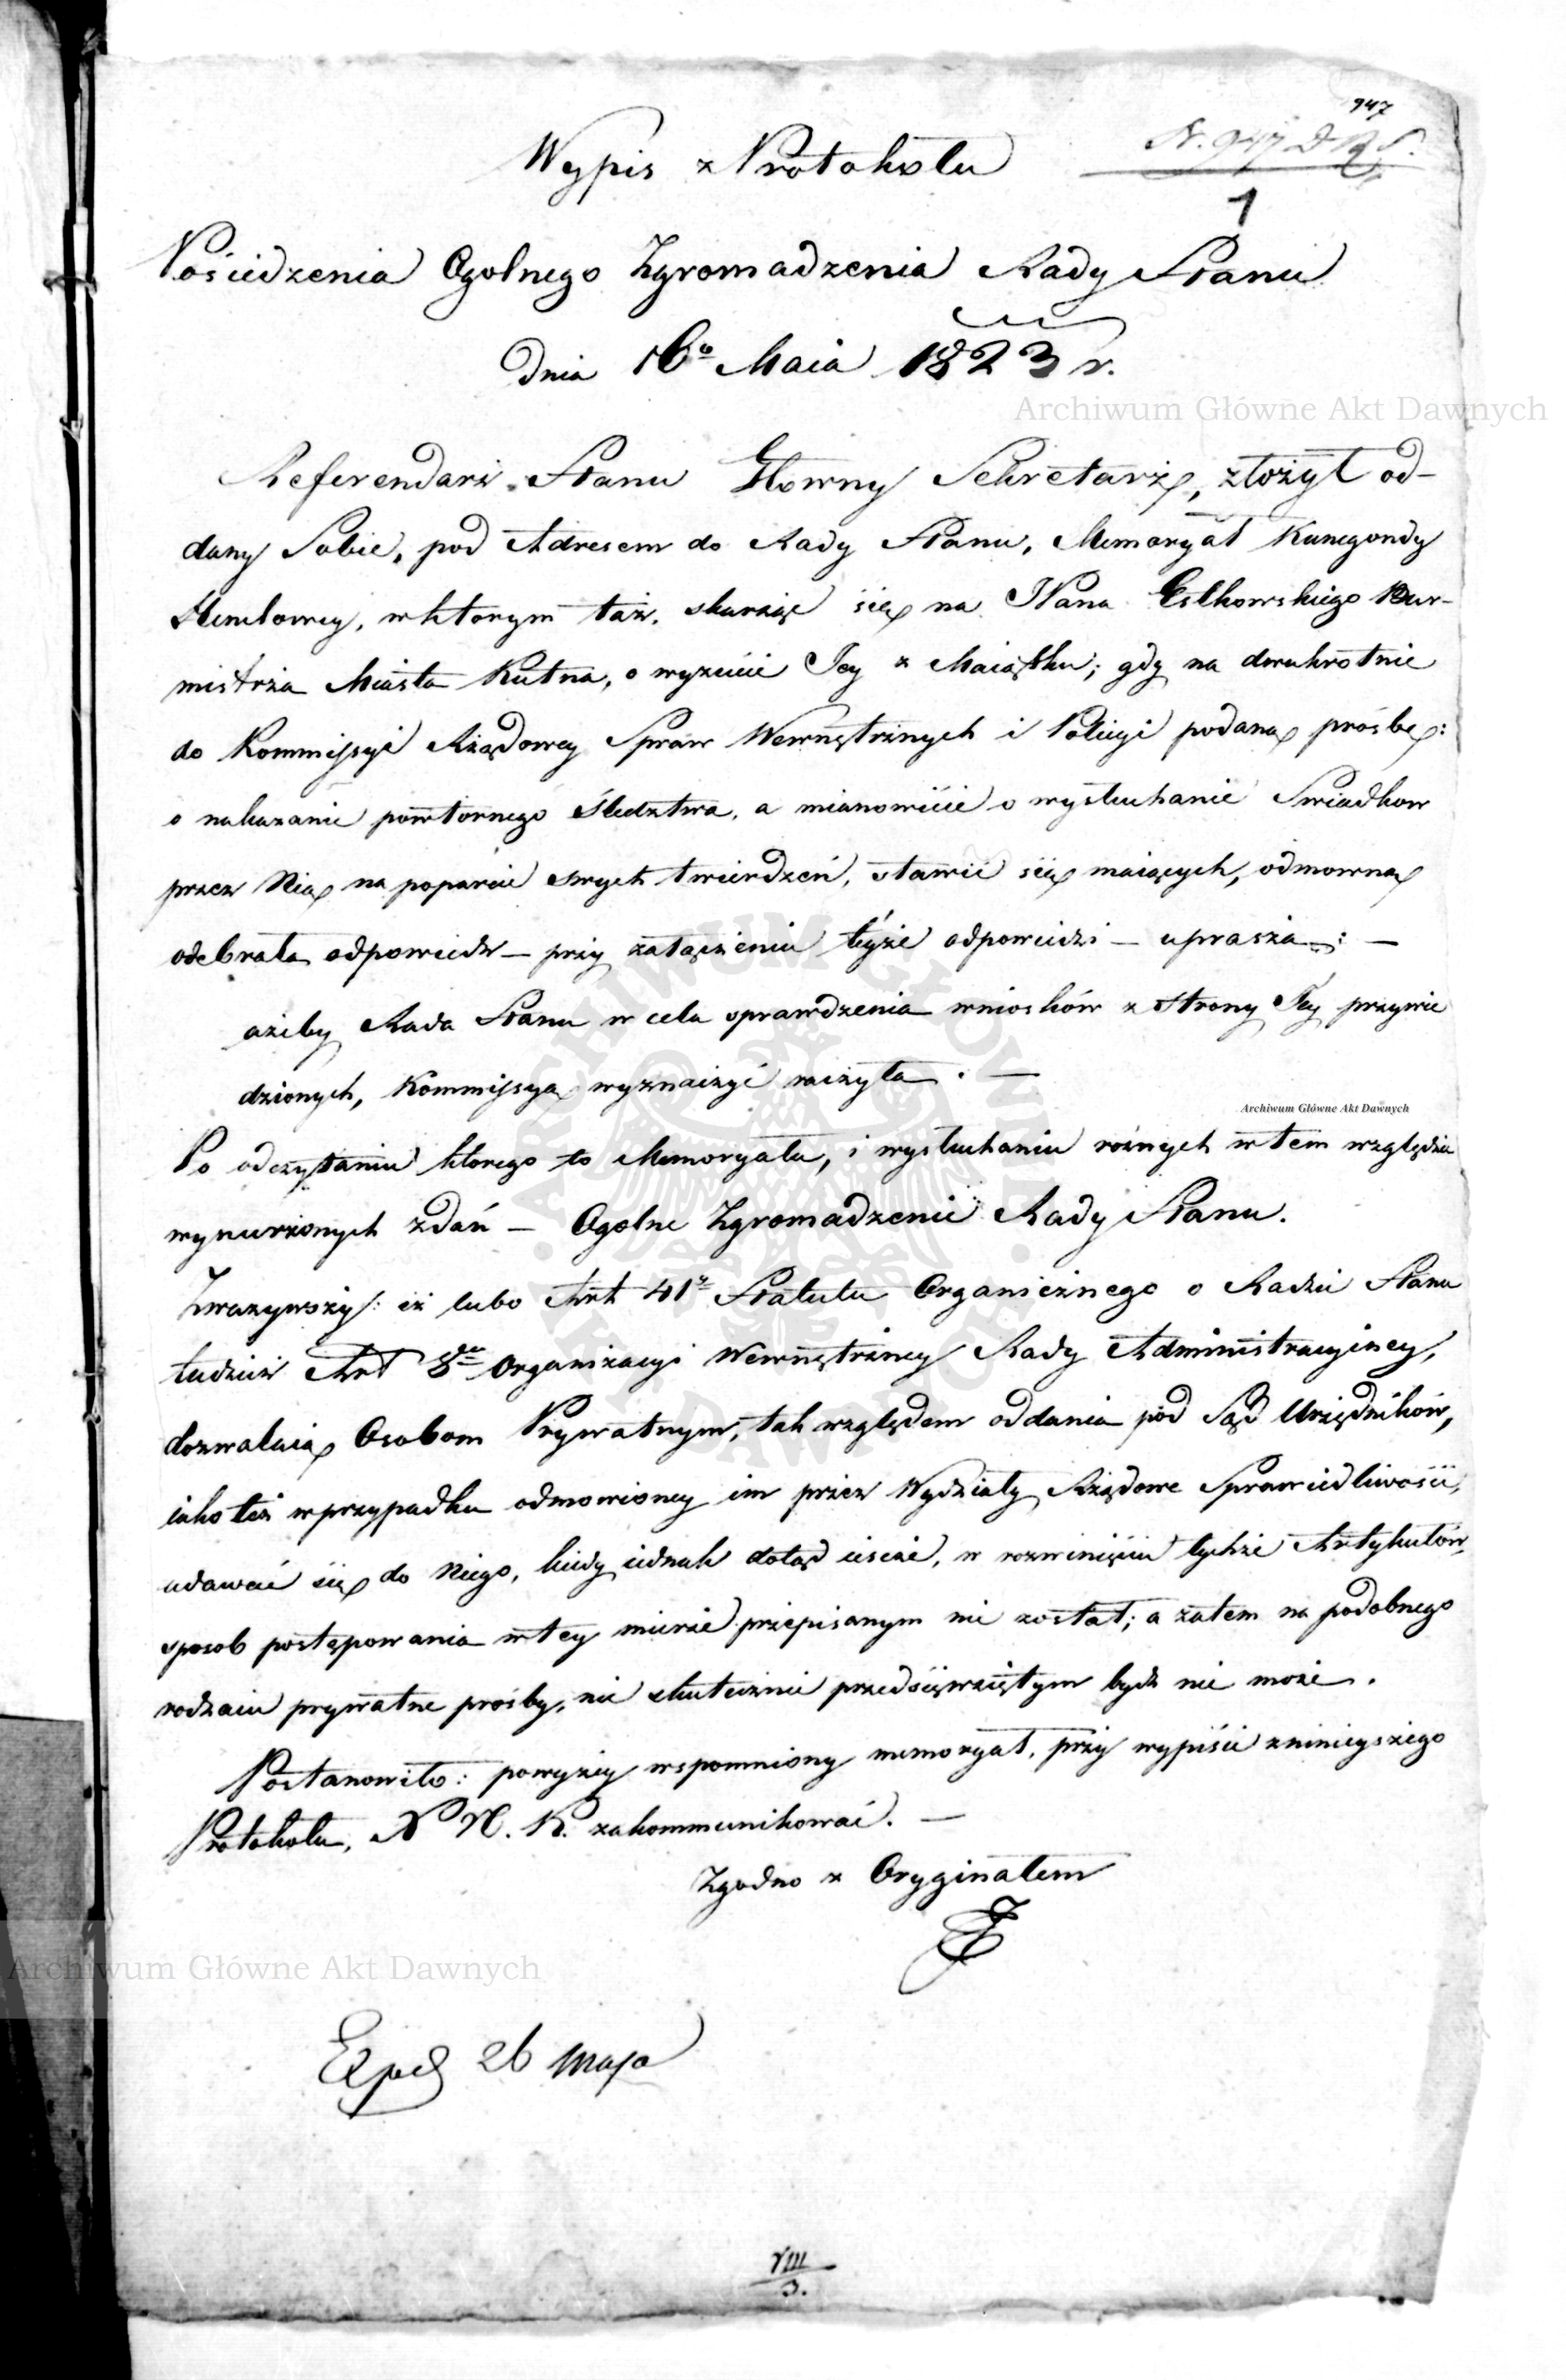 947
N. 947 D R S.
1
Wypis z Protokołu
Posiedzenia Ogolnego Zgromadzenia Rady Stanu
dnia 16º Maia 1823 r.
Archiwum Główne Akt Dawnych
Referendarz Stanu Głowny Sekretarz, złożył od-
dany Sobie, pod Adresem do Rady Stanu, Memoryał Kunegondy
w ktorym taż, skarżąc się na Pana Estkowskiego Bur-
mistrza Miasta Kutna, o wyzucie Jey z Maiątku; gdy na dwukrotnie
do Kommissyi Rządowey Spraw Wewnętrznych i Policyi podaną prośbę:
o nakazanie powtornego Śledztwa, a mianowicie o wysłuchanie Swiadkow
przez Nią na poparcie swych twierdzeń, stawić się maiących, odmowną
odebrała odpowiedz — przy załączeniu teyże odpowiedzi — uprasza: —
ażeby Rada Stanu w celu sprawdzenia wniosków z strony Jey przywie
dzionych, Kommissyą wyznaczyć raczyła. —
Archiwum Główne Akt Dawnych
Po odczytaniu ktorego to Memoryału, i wysłuchaniu rożnych w tem względzie
wynurzonych zdań — Ogolne Zgromadzenie Rady Stanu.
Zważywszy: iż lubo Art 41º Statutu Organicznego o Radzie Stanu
tudzież Art 8º Organizacyi Wewnętrzney Rady Administracyiney,
dozwalaią Osobom Prywatnym, tak względem oddania pod Sąd Urzędników,
iako też w przypadku odmowioney im przez Wydziały Rządowe Sprawiedliwości,
udawać się do Niego, kiedy iednak dotąd ieszcze, w rozwinięciu tychże Artykułów,
sposob postępowania w tey mierze przepisanym nie został; a zatem na podobnego
rodzaiu prywatne prośby, nic skutecznie przedsięwziętym bydz nie może.
Postanowiło: powyżey wspomniony memoryał, przy wypisie z ninieyszego
Protokołu, N. K. zakommunikować. —
Zgodno z Oryginałem
Archiwum Główne Akt Dawnych
Exped 26 Maja
VIII
3.
ARCHIWUM GŁÓWNE · AKT DAWNYCH ·